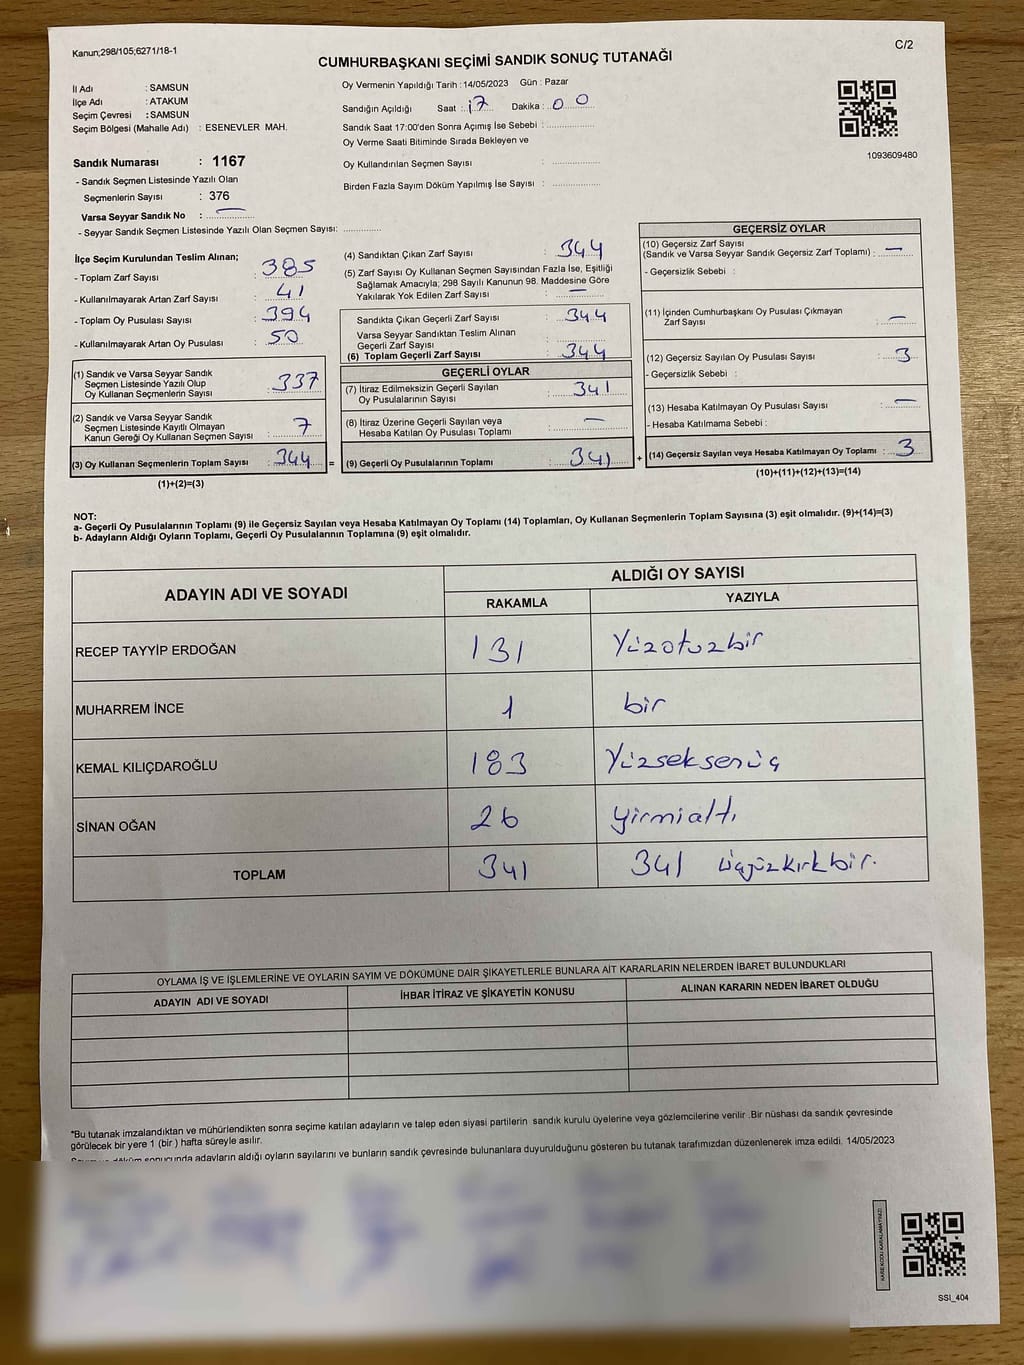 Kanun;298/105;6271/18-1
C/2
CUMHURBAŞKANI SEÇİMİ SANDIK SONUÇ TUTANAĞI
İl Adı : SAMSUN
İlçe Adı : ATAKUM
Seçim Çevresi : SAMSUN
Seçim Bölgesi (Mahalle Adı) : ESENEVLER MAH.
Oy Vermenin Yapıldığı Tarih : 14/05/2023 Gün : Pazar
Sandığın Açıldığı Saat : 17 Dakika : 00
Sandık Saat 17:00'den Sonra Açımış İse Sebebi :
Oy Verme Saati Bitiminde Sırada Bekleyen ve
Oy Kullandırılan Seçmen Sayısı :
Birden Fazla Sayım Döküm Yapılmış İse Sayısı :
1093609480
Sandık Numarası : 1167
- Sandık Seçmen Listesinde Yazılı Olan
Seçmenlerin Sayısı : 376
Varsa Seyyar Sandık No : —
- Seyyar Sandık Seçmen Listesinde Yazılı Olan Seçmen Sayısı:
İlçe Seçim Kurulundan Teslim Alınan;
- Toplam Zarf Sayısı : 385
- Kullanılmayarak Artan Zarf Sayısı : 41
- Toplam Oy Pusulası Sayısı : 394
- Kullanılmayarak Artan Oy Pusulası : 50
(1) Sandık ve Varsa Seyyar Sandık
Seçmen Listesinde Yazılı Olup
Oy Kullanan Seçmenlerin Sayısı : 337
(2) Sandık ve Varsa Seyyar Sandık
Seçmen Listesinde Kayıtlı Olmayan
Kanun Gereği Oy Kullanan Seçmen Sayısı : 7
(3) Oy Kullanan Seçmenlerin Toplam Sayısı : 344
(1)+(2)=(3)
=
(4) Sandıktan Çıkan Zarf Sayısı : 344
(5) Zarf Sayısı Oy Kullanan Seçmen Sayısından Fazla İse, Eşitliği
Sağlamak Amacıyla; 298 Sayılı Kanunun 98. Maddesine Göre
Yakılarak Yok Edilen Zarf Sayısı : —
Sandıkta Çıkan Geçerli Zarf Sayısı : 344
Varsa Seyyar Sandıktan Teslim Alınan
Geçerli Zarf Sayısı :
(6) Toplam Geçerli Zarf Sayısı : 344
GEÇERLİ OYLAR
(7) İtiraz Edilmeksizin Geçerli Sayılan
Oy Pusulalarının Sayısı : 341
(8) İtiraz Üzerine Geçerli Sayılan veya
Hesaba Katılan Oy Pusulası Toplamı : —
(9) Geçerli Oy Pusulalarının Toplamı : 341
+
GEÇERSİZ OYLAR
(10) Geçersiz Zarf Sayısı
(Sandık ve Varsa Seyyar Sandık Geçersiz Zarf Toplamı) : —
- Geçersizlik Sebebi :
(11) İçinden Cumhurbaşkanı Oy Pusulası Çıkmayan
Zarf Sayısı : —
(12) Geçersiz Sayılan Oy Pusulası Sayısı : 3
- Geçersizlik Sebebi :
(13) Hesaba Katılmayan Oy Pusulası Sayısı : —
- Hesaba Katılmama Sebebi :
(14) Geçersiz Sayılan veya Hesaba Katılmayan Oy Toplamı : 3
(10)+(11)+(12)+(13)=(14)
NOT:
a- Geçerli Oy Pusulalarının Toplamı (9) ile Geçersiz Sayılan veya Hesaba Katılmayan Oy Toplamı (14) Toplamları, Oy Kullanan Seçmenlerin Toplam Sayısına (3) eşit olmalıdır. (9)+(14)=(3)
b- Adayların Aldığı Oyların Toplamı, Geçerli Oy Pusulalarının Toplamına (9) eşit olmalıdır.
ADAYIN ADI VE SOYADI ALDIĞI OY SAYISI
RAKAMLA YAZIYLA
RECEP TAYYİP ERDOĞAN 131 Yüzotuzbir
MUHARREM İNCE 1 bir
KEMAL KILIÇDAROĞLU 183 Yüzseksenüç
SİNAN OĞAN 26 yirmialtı
TOPLAM 341 341 üçyüzkırkbir.
OYLAMA İŞ VE İŞLEMLERİNE VE OYLARIN SAYIM VE DÖKÜMÜNE DAİR ŞİKAYETLERLE BUNLARA AİT KARARLARIN NELERDEN İBARET BULUNDUKLARI
ADAYIN ADI VE SOYADI İHBAR İTİRAZ VE ŞİKAYETİN KONUSU ALINAN KARARIN NEDEN İBARET OLDUĞU
*Bu tutanak imzalandıktan ve mühürlendikten sonra seçime katılan adayların ve talep eden siyasi partilerin sandık kurulu üyelerine veya gözlemcilerine verilir .Bir nüshası da sandık çevresinde
görülecek bir yere 1 (bir ) hafta süreyle asılır.
döküm sonucunda adayların aldığı oyların sayılarını ve bunların sandık çevresinde bulunanlara duyurulduğunu gösteren bu tutanak tarafımızdan düzenlenerek imza edildi. 14/05/2023
SSI_404